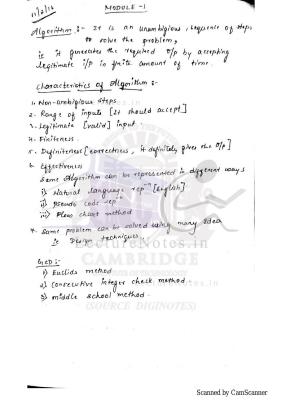 11/2/16
MODULE -1
Algorithm :- It is an unambigious, sequence of steps
to solve the problem,
ie it generates the required o/p by accepting
legitimate i/p in finite amount of time.
Characteristics of Algorithm :-
1. Non-ambigious steps
2. Range of inputs [It should accept]
3. Legitimate [valid] input.
4. Finiteness.
5. Definiteness [correctness, it definitely gives the o/p]
6. Effectiveness
Same Algorithm can be represented in different ways
i) Natural language repⁿ [English]
ii) Pseudo code repⁿ
iii) Flow chart method
7. Same problem can be solved using many idea
ie Design techniques.
LectureNotes.in
CAMBRIDGE
GCD :-
1) Euclids method
2) Consecutive integer check method
3) middle school method.
(SOURCE DIGINOTES)
Scanned by CamScanner